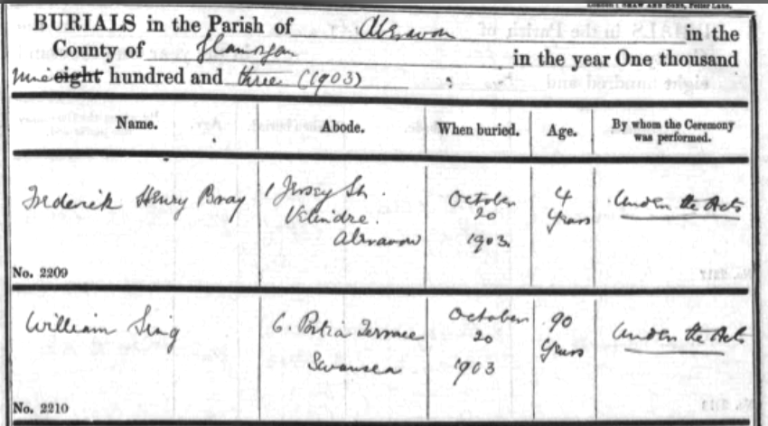 BURIALS in the Parish of Aberavon in the
County of Glamorgan in the year One thousand
nine eight hundred and three (1903)
Name. Abode. When buried. Age. By whom the Ceremony was performed.
Frederick Henry Bray
1 Jersey St.
Velindre.
Aberavon
October
20
1903
4
Years
Under the Acts
No. 2209
William Sing
6. Portia Terrace
Swansea
October
20
1903
90
Years
Under the Acts
No. 2210